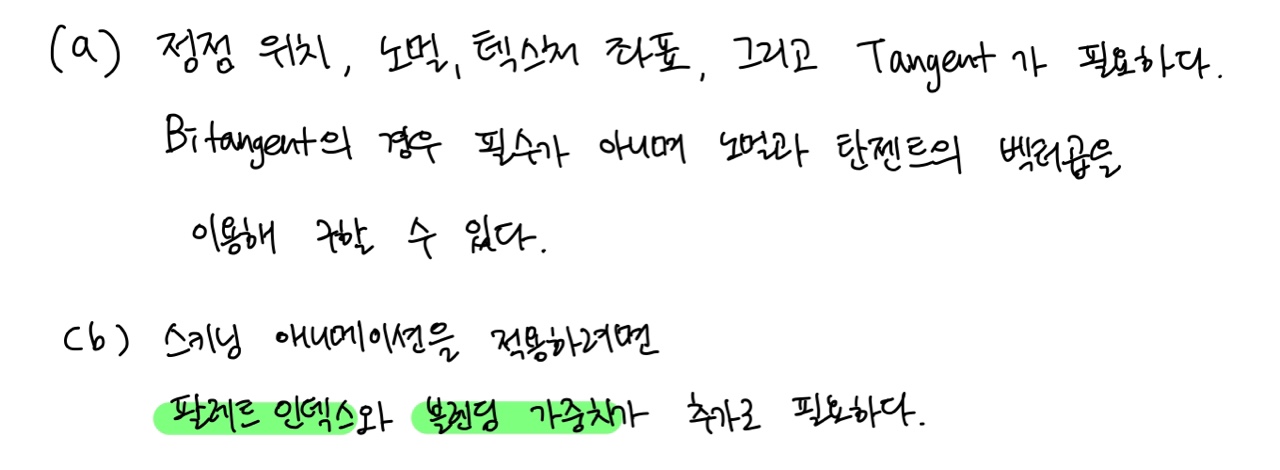 (a) 정점 위치, 노멀, 텍스처 좌표, 그리고 Tangent 가 필요하다.
Bitangent의 경우 필수가 아니며 노멀과 탄젠트의 벡터곱을
이용해 구할 수 있다.
(b) 스키닝 애니메이션을 적용하려면
팔레트 인덱스와 블렌딩 가중치가 추가로 필요하다.